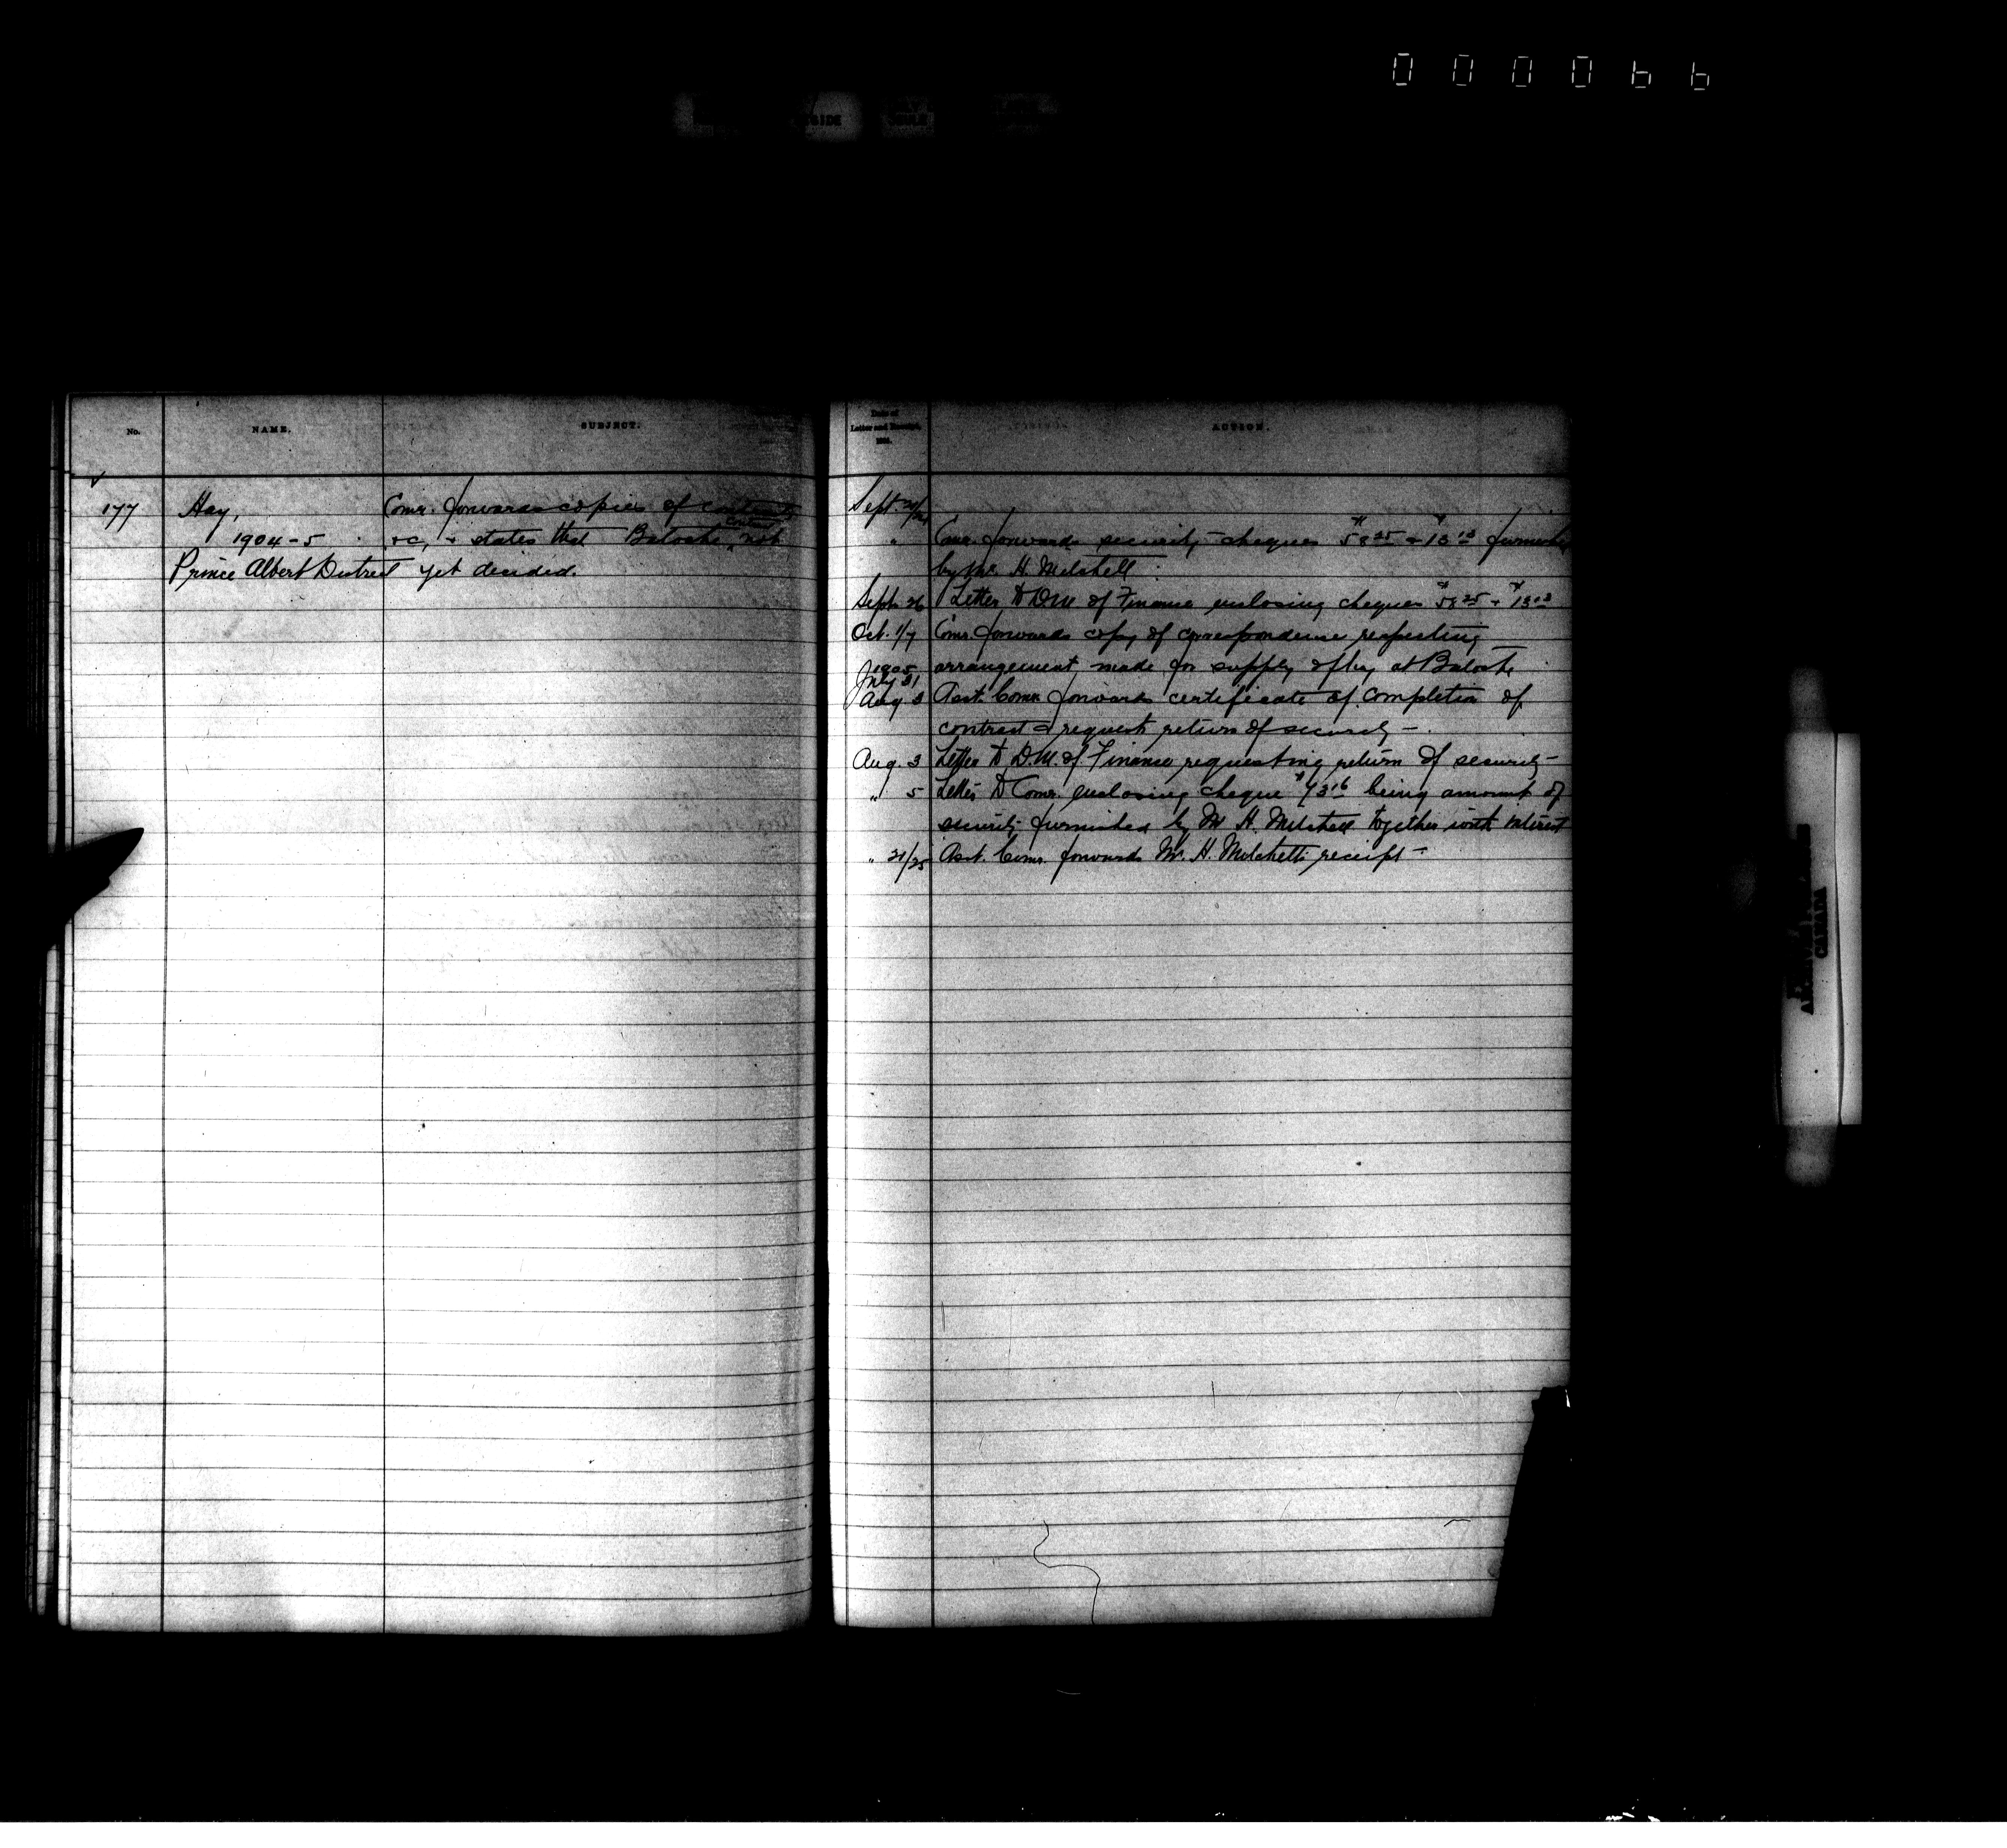 000066
No. NAME. SUBJECT.
177 Hay, Comr. forwards copies of contracts
1904-5 &c, & states that Batoche contract not
Prince Albert District yet decided.
Date of
Letter and Receipt,
ACTION.
Sept. 20/24
" Comr. forwards security cheques $58 25 & $13 13 furnished
by Mr. H. Mitchell
Sept. 26 Letter to D.M. of Finance enclosing cheques $58 25 & $13 13
Oct. 1/7 Comr. forwards copy of correspondence respecting
arrangement made for supply of hay at Batoche
1905
July 31
Aug 3 Asst. Comr. forwards certificate of completion of
contract & request return of security -
Aug. 3 Letter to D.M. of Finance requesting return of security -
" 5 Letter to Comr. enclosing cheque $73 16 being amount of
security furnished by Mr H. Mitchell together with interest
" 21/25 Asst. Comr. forwards Mr. H. Mitchell's receipt -